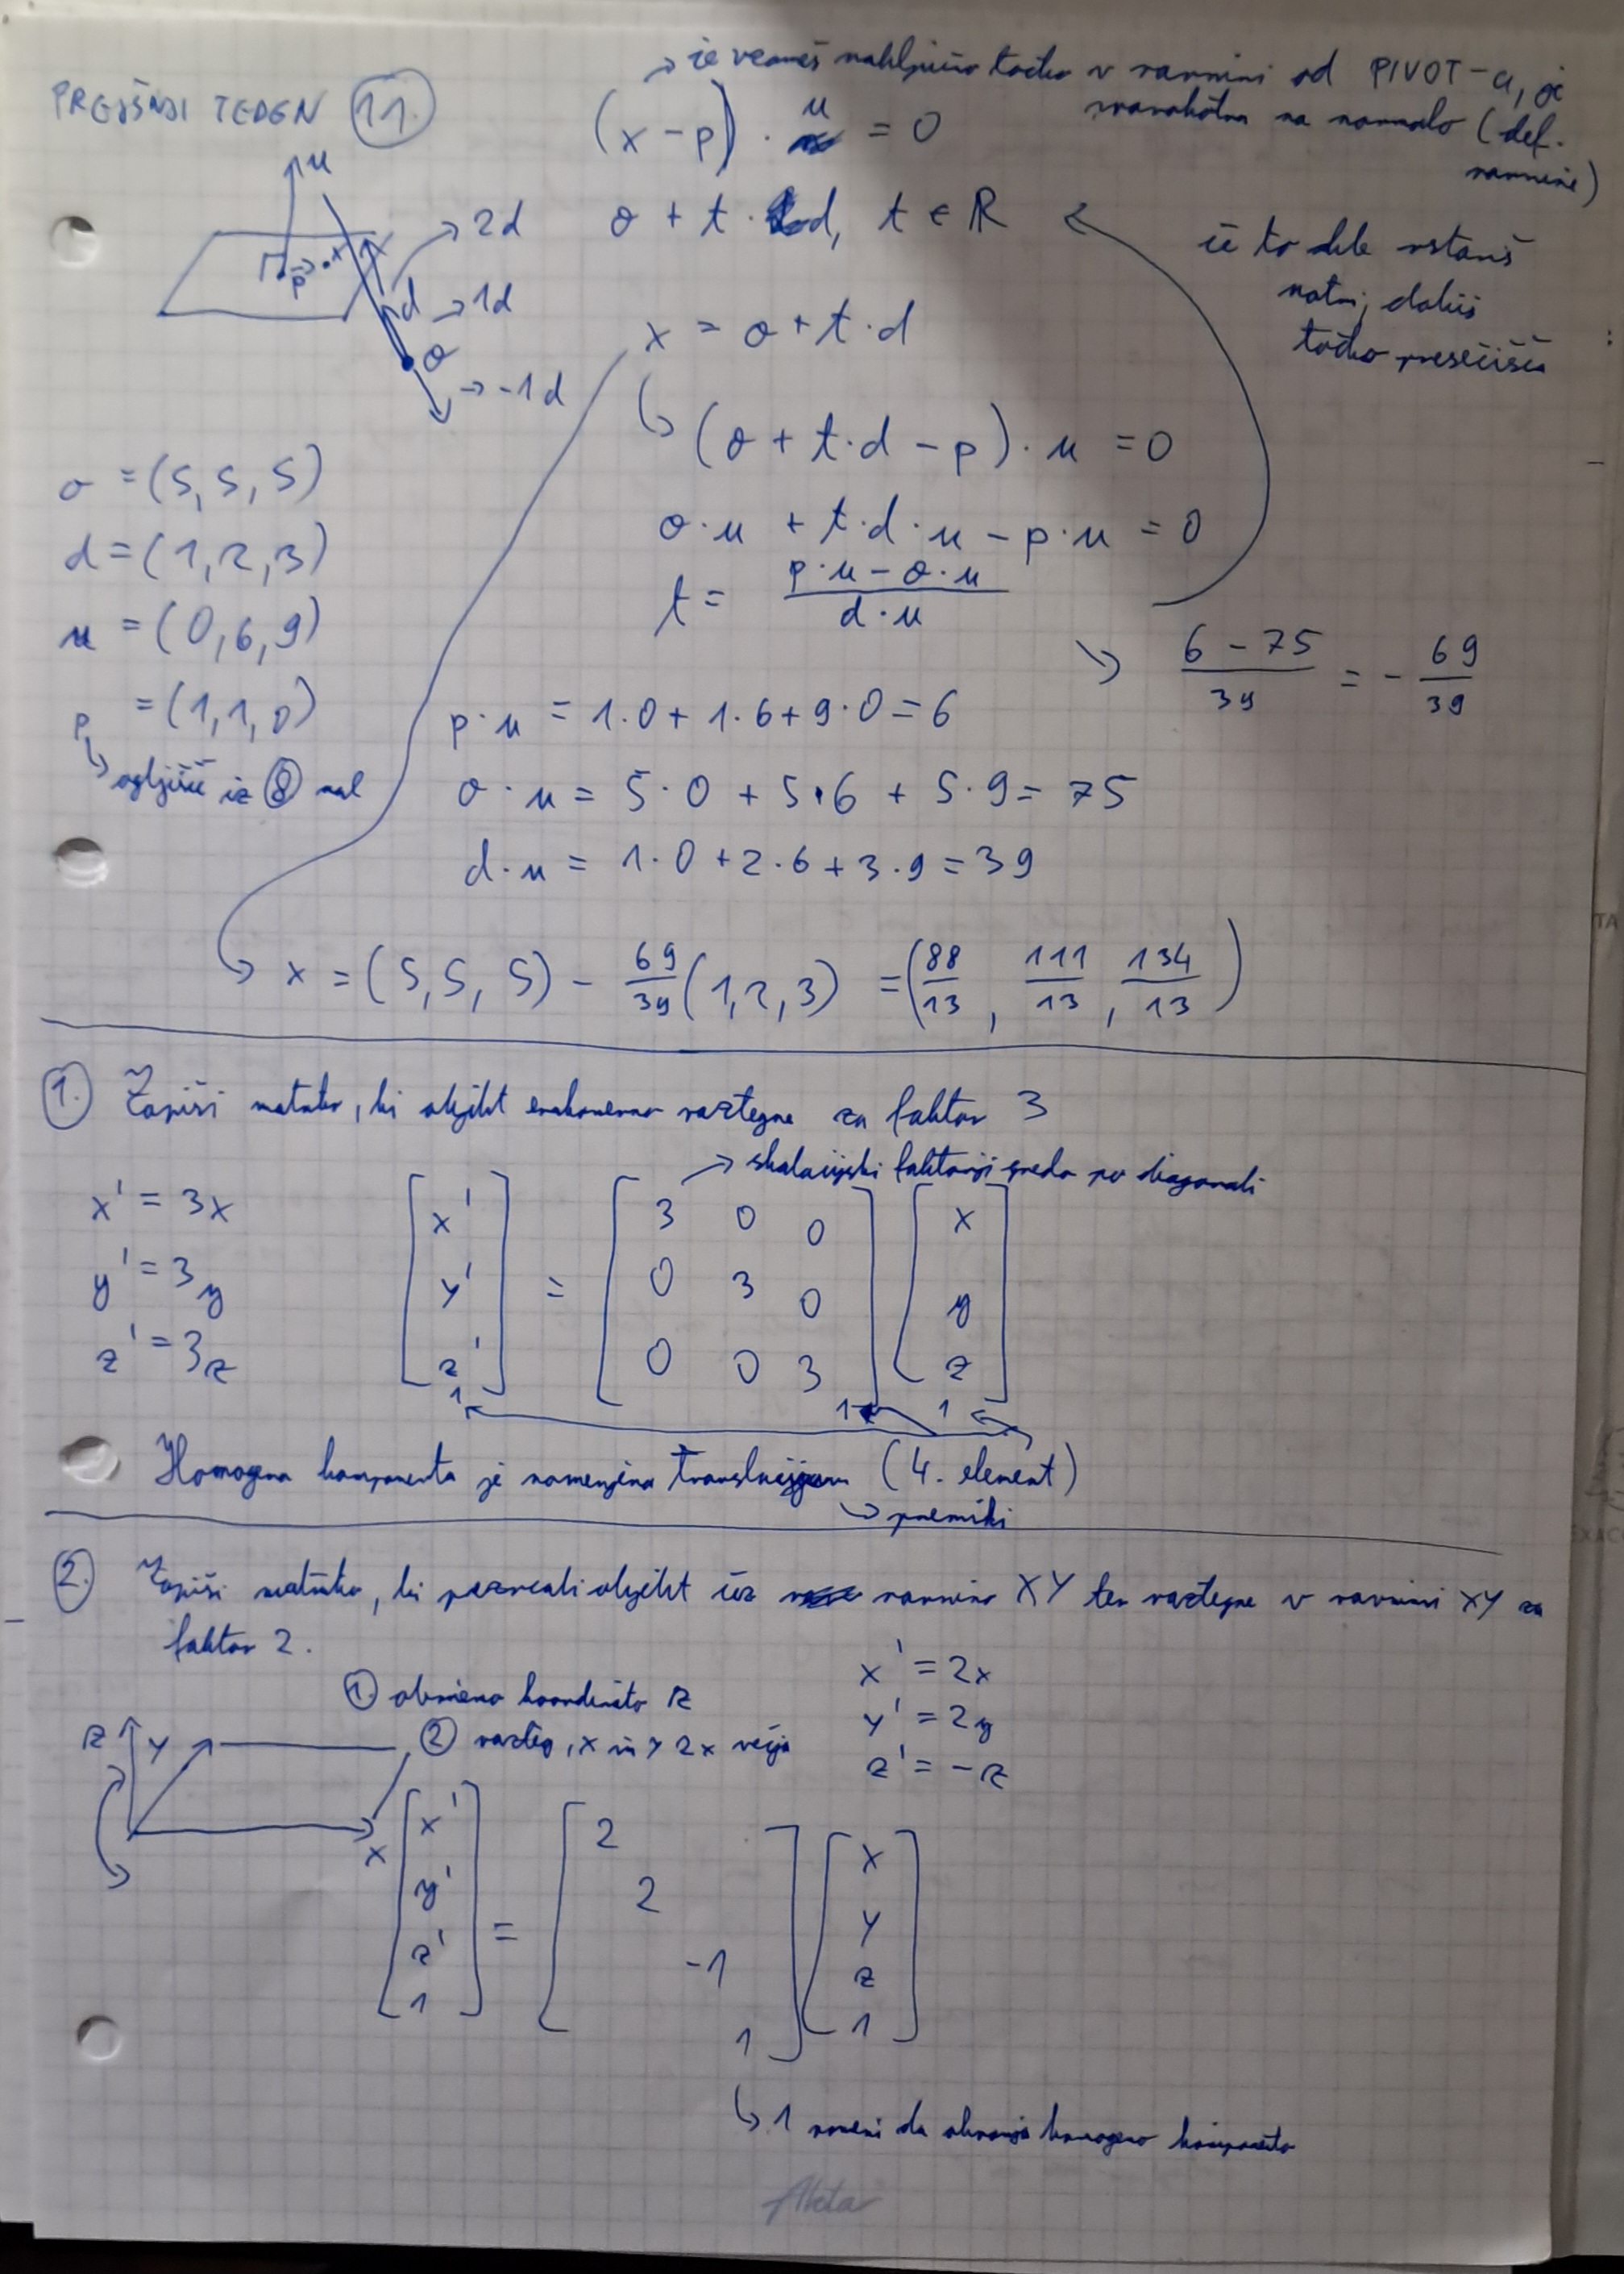 PREJŠNJI TEDEN 11.
→ če vzameš naključno točko v ravnini od PIVOT-a, je
pravokotna na normalo (def. ravnine)
(x - p) · n = 0
o + t · d, t ∈ R
če to dele vstaviš
notri, dobiš
točko presečišča
n
2d
p
x
d → 1d
o
→ -1d
x = o + t · d
(o + t · d - p) · n = 0
o · n + t · d · n - p · n = 0
t = (p · n - o · n) / (d · n)
(6 - 75) / 39 = - 69/39
o = (5, 5, 5)
d = (1, 2, 3)
n = (0, 6, 9)
p = (1, 1, 0)
↳ ogljišče iz 8 nal
p · n = 1 · 0 + 1 · 6 + 9 · 0 = 6
o · n = 5 · 0 + 5 · 6 + 5 · 9 = 75
d · n = 1 · 0 + 2 · 6 + 3 · 9 = 39
x = (5, 5, 5) - 69/39 (1, 2, 3) = (88/13, 111/13, 134/13)
1. Zapiši matriko, ki objekt enakomerno raztegne za faktor 3
→ skalacijski faktorji gredo po diagonali
x' = 3x
y' = 3y
z' = 3z
[x' y' z' 1] = [3 0 0
0 3 0
0 0 3
1] [x y z 1]
Homogena komponenta je namenjena translacijam (4. element)
↳ premiki
2. Zapiši matriko, ki prezrcali objekt čez ravnino XY ter raztegne v ravnini XY za
faktor 2.
1. obrnemo koordinato z
2. razteg, x in y 2x večja
x' = 2x
y' = 2y
z' = -z
z
y
x
[x' y' z' 1] = [2
2
-1
1] [x y z 1]
↳ 1 pomeni da ohranja homogeno komponento
Aketa